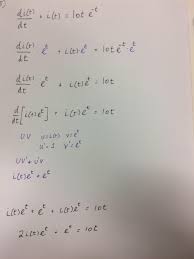 di(t)/dt + i(t) = 10t e^-t
di(t)/dt e^t + i(t) e^t = 10t e^-t · e^t
di(t)/dt e^t + i(t) e^t = 10t
d/dt [i(t) e^t] = i(t) e^t = 10t
UV u=i(t) v=e^t
u'=1 v'=e^t
UV' + u'v
i(t)e^t + e^t
i(t)e^t + e^t + i(t)e^t = 10t
2i(t)e^t + e^t = 10t